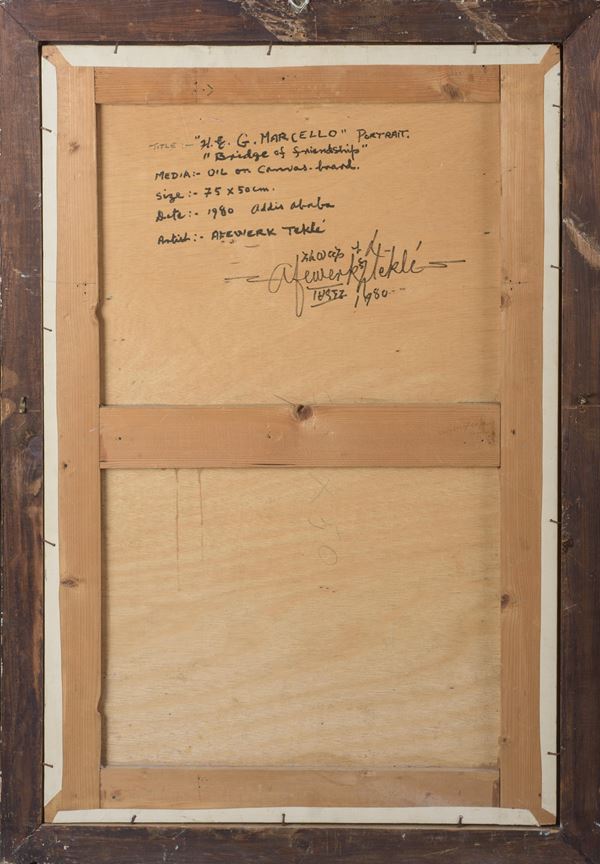 TITLE :- "H.E. G. MARCELLO" PORTRAIT.
"Bridge of friendship"
MEDIA:- OIL on Canvas-board.
Size :- 75 x 50 cm.
Date :- 1980 Addis ababa
Artist :- AFEWERK Teklé
afewerk teklé
1980
x50